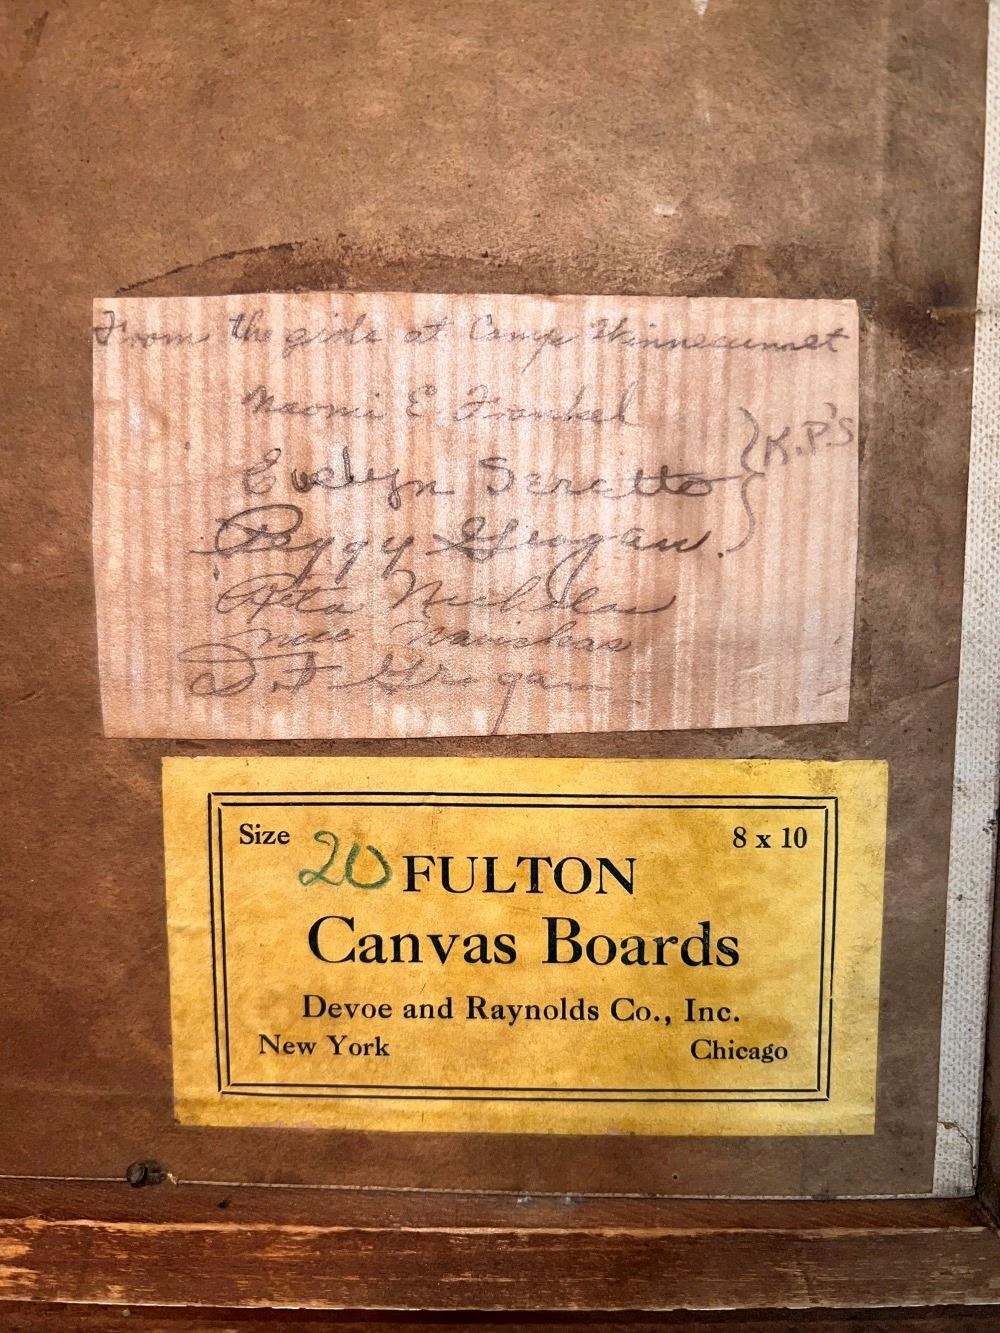 From the girls at Camp Winnecunnet
Naomi E. Frankel
Evelyn Seretto } K.P.'s
Peggy Grogan.
Rita Nicholas
D. F. Grogan
Size 20 8 x 10
FULTON
Canvas Boards
Devoe and Raynolds Co., Inc.
New York Chicago